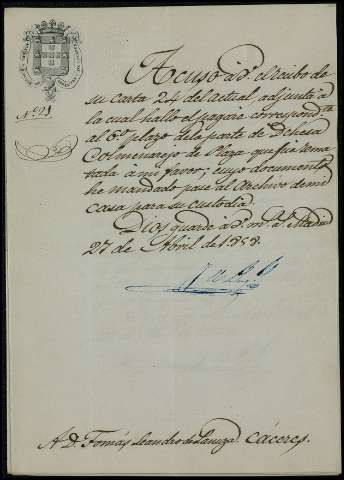 Nº 21
Acuso á V. el recibo de
su carta 24 del actual, adjunta á
la cual hallo el pagaré correspond.te
al 6º plazo de la parte de Dehesa
Colmenarejo de Plaza que fué rema
tada á mi favor; cuyo documento
he mandado pase al Archivo de mi
casa para su custodia.
Dios guarde á V. m. a. Madrid
27 de Abril de 1858.
A D. Tomás Leandro de Cáceres.